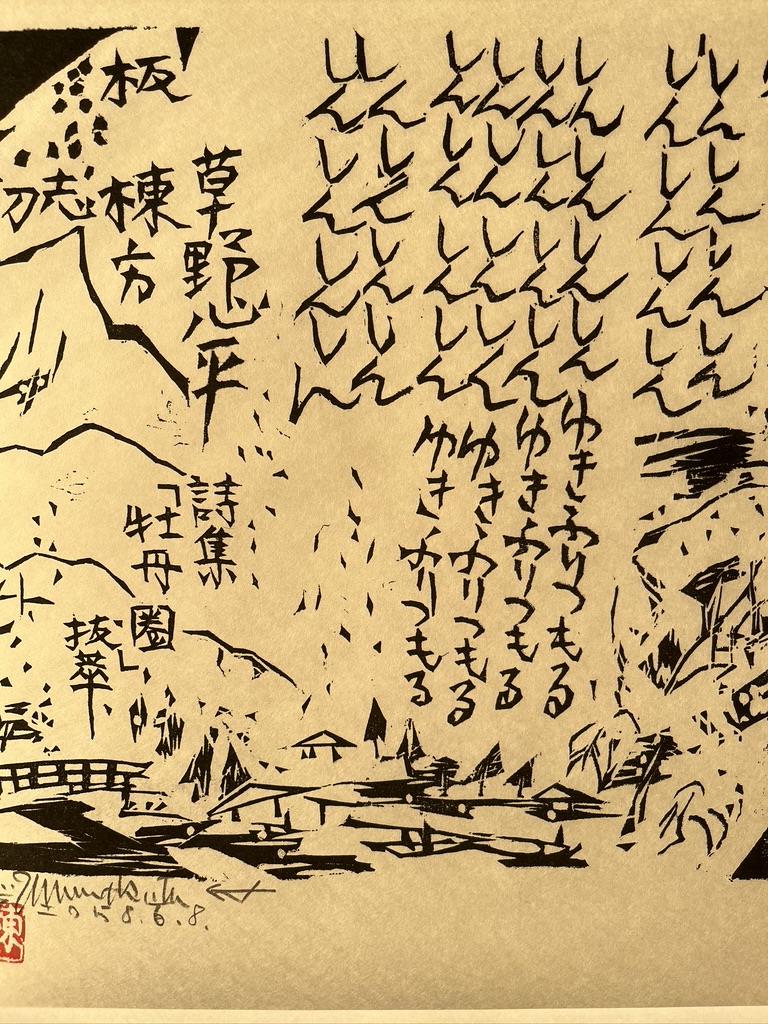 しんしんしんしん
しんしんしんしん
しんしんしんしんゆきふりつもる
しんしんしんしんゆきふりつもる
しんしんしんしんゆきふりつもる
しんしんしんしんゆきふりつもる
しんしんしんしん
しんしんしんしん
草野心平
詩集
「牡丹圏」
抜萃
板
棟方
志
Munakata
棟